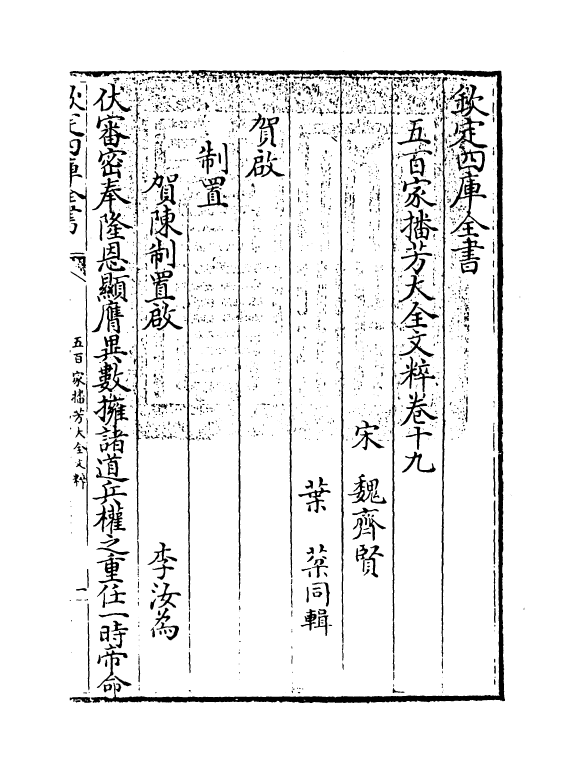 欽定四庫全書
五百家播芳大全文粹卷十九
宋 魏齊賢
葉棻同輯
賀啟
制置
賀陳制置啟 李汝為
伏審密奉隆恩顯膺異數擁諸道兵權之重任一時帝命
欽定四庫全書
五百家播芳大全文粹
一